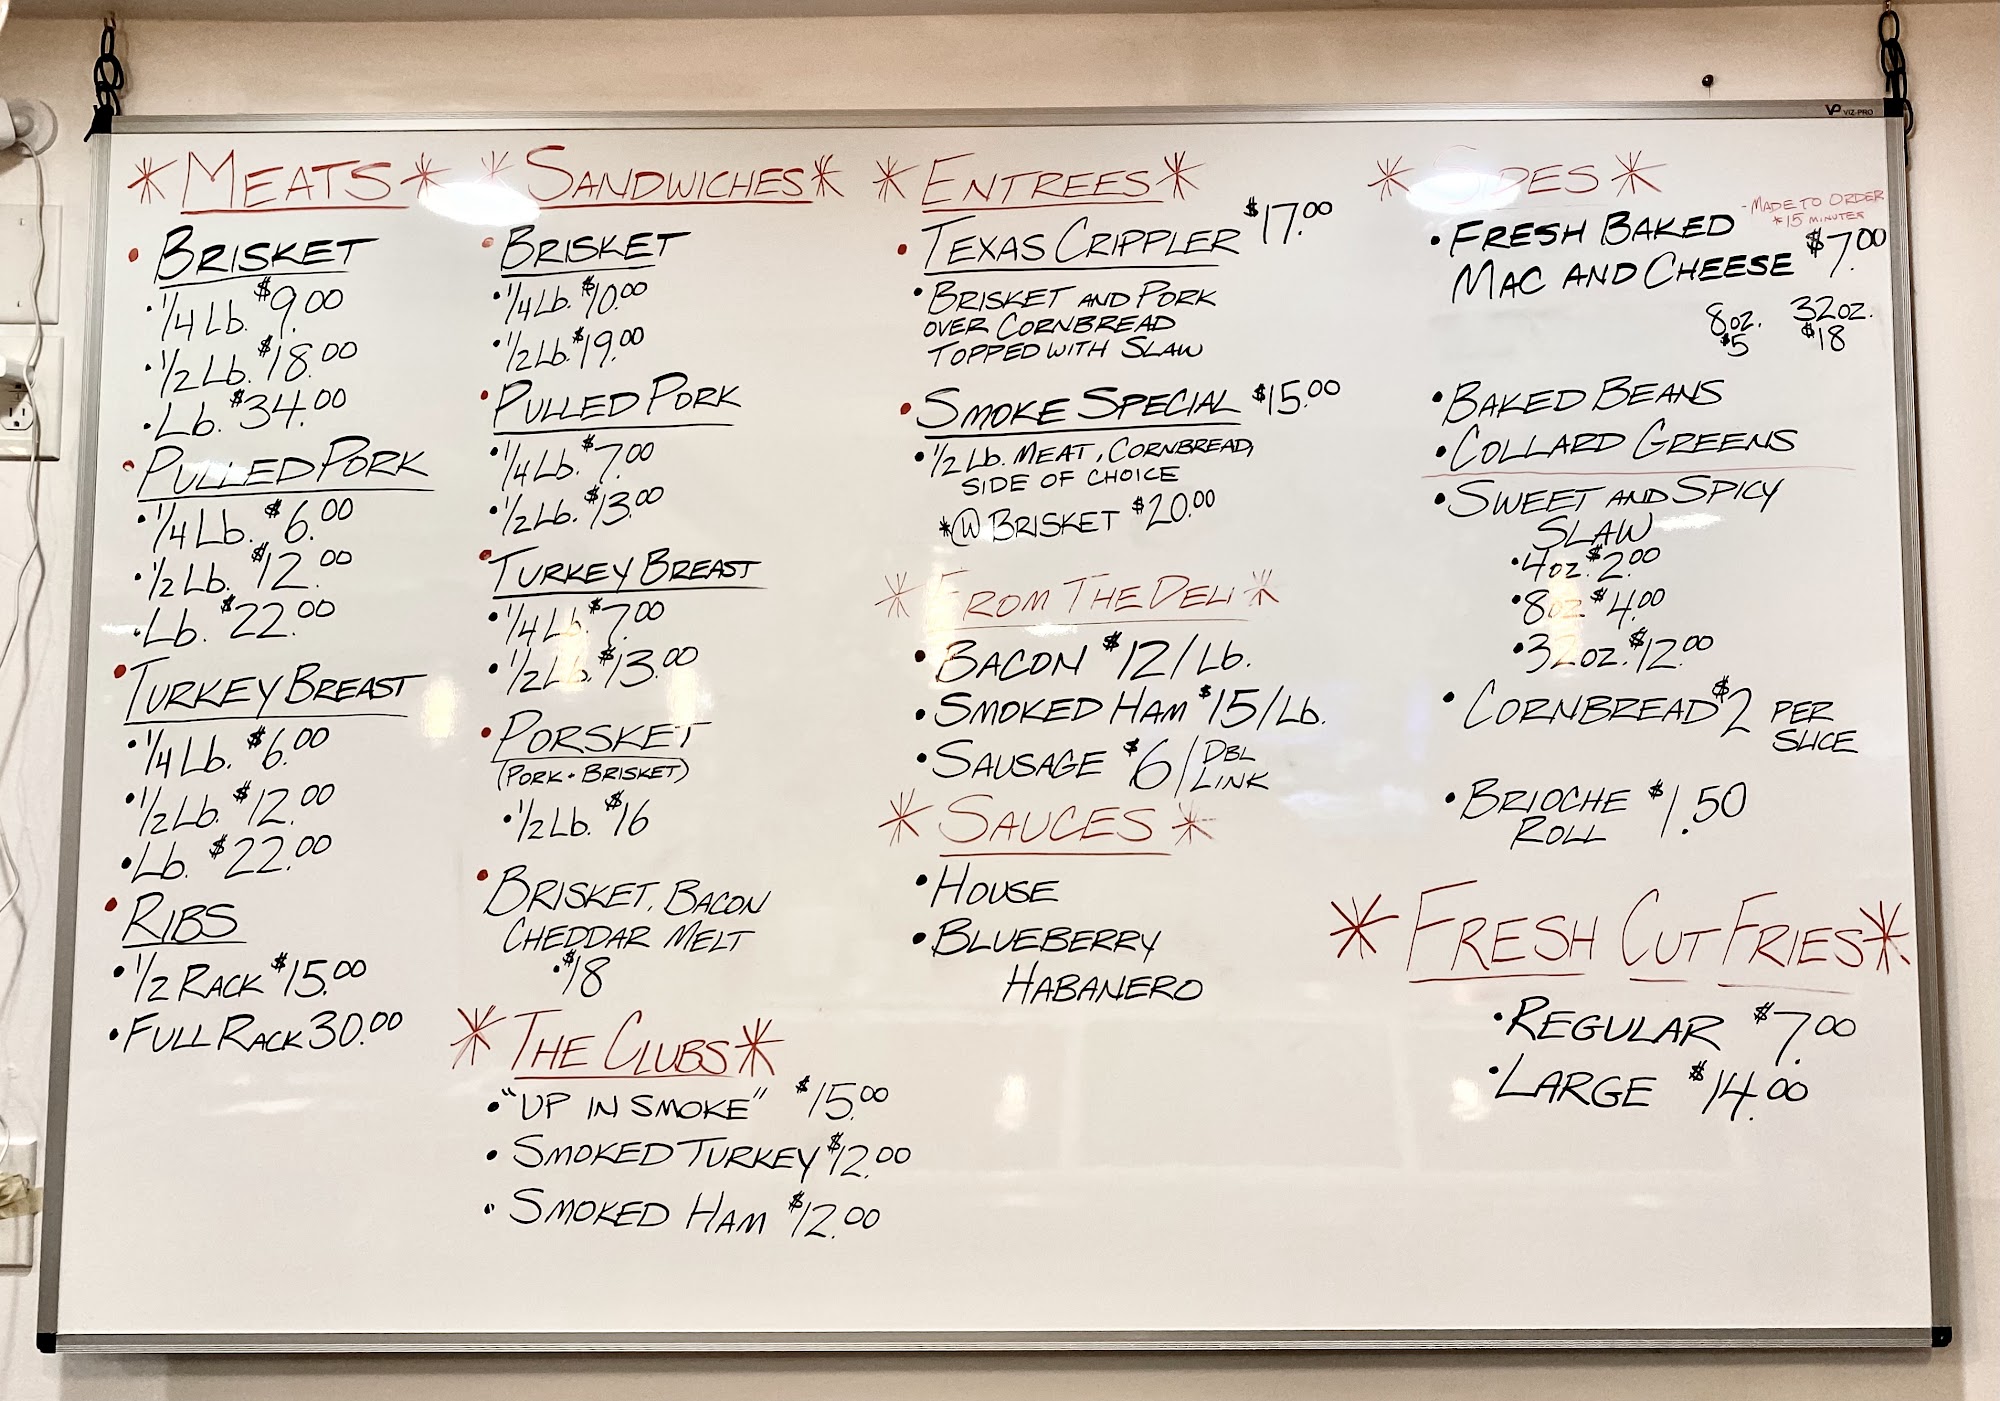 VP VIZ-PRO
*MEATS*
• BRISKET
• 1/4 Lb. $9.00
• 1/2 Lb. $18.00
• Lb. $34.00
• PULLED PORK
• 1/4 Lb. $6.00
• 1/2 Lb. $12.00
• Lb. $22.00
• TURKEY BREAST
• 1/4 Lb. $6.00
• 1/2 Lb. $12.00
• Lb. $22.00
• RIBS
• 1/2 RACK $15.00
• FULL RACK 30.00
*SANDWICHES*
• BRISKET
• 1/4 Lb. $10.00
• 1/2 Lb. $19.00
• PULLED PORK
• 1/4 Lb. $7.00
• 1/2 Lb. $13.00
• TURKEY BREAST
• 1/4 Lb. $7.00
• 1/2 Lb. $13.00
• PORSKET
(PORK + BRISKET)
• 1/2 Lb. $16
• BRISKET, BACON
CHEDDAR MELT
• $18
*THE CLUBS*
• "UP IN SMOKE" $15.00
• SMOKED TURKEY $12.00
• SMOKED HAM $12.00
*ENTREES*
• TEXAS CRIPPLER $17.00
• BRISKET AND PORK
OVER CORNBREAD
TOPPED WITH SLAW
• SMOKE SPECIAL $15.00
• 1/2 Lb. MEAT, CORNBREAD,
SIDE OF CHOICE
*@ BRISKET $20.00
*FROM THE DELI*
• BACON $12/Lb.
• SMOKED HAM $15/Lb.
• SAUSAGE $6/DBL
LINK
*SAUCES*
• HOUSE
• BLUEBERRY
HABANERO
*SIDES*
- MADE TO ORDER
*15 MINUTES
• FRESH BAKED
MAC AND CHEESE $7.00
8oz. 32oz.
$5 $18
• BAKED BEANS
• COLLARD GREENS
• SWEET AND SPICY
SLAW
• 4oz. $2.00
• 8oz $4.00
• 32oz. $12.00
• CORNBREAD $2 PER
SLICE
• BRIOCHE $1.50
ROLL
*FRESH CUT FRIES*
• REGULAR $7.00
• LARGE $14.00